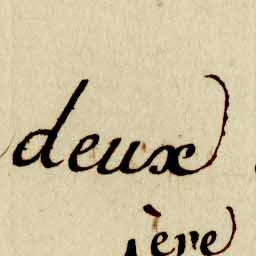 deux)
ère)